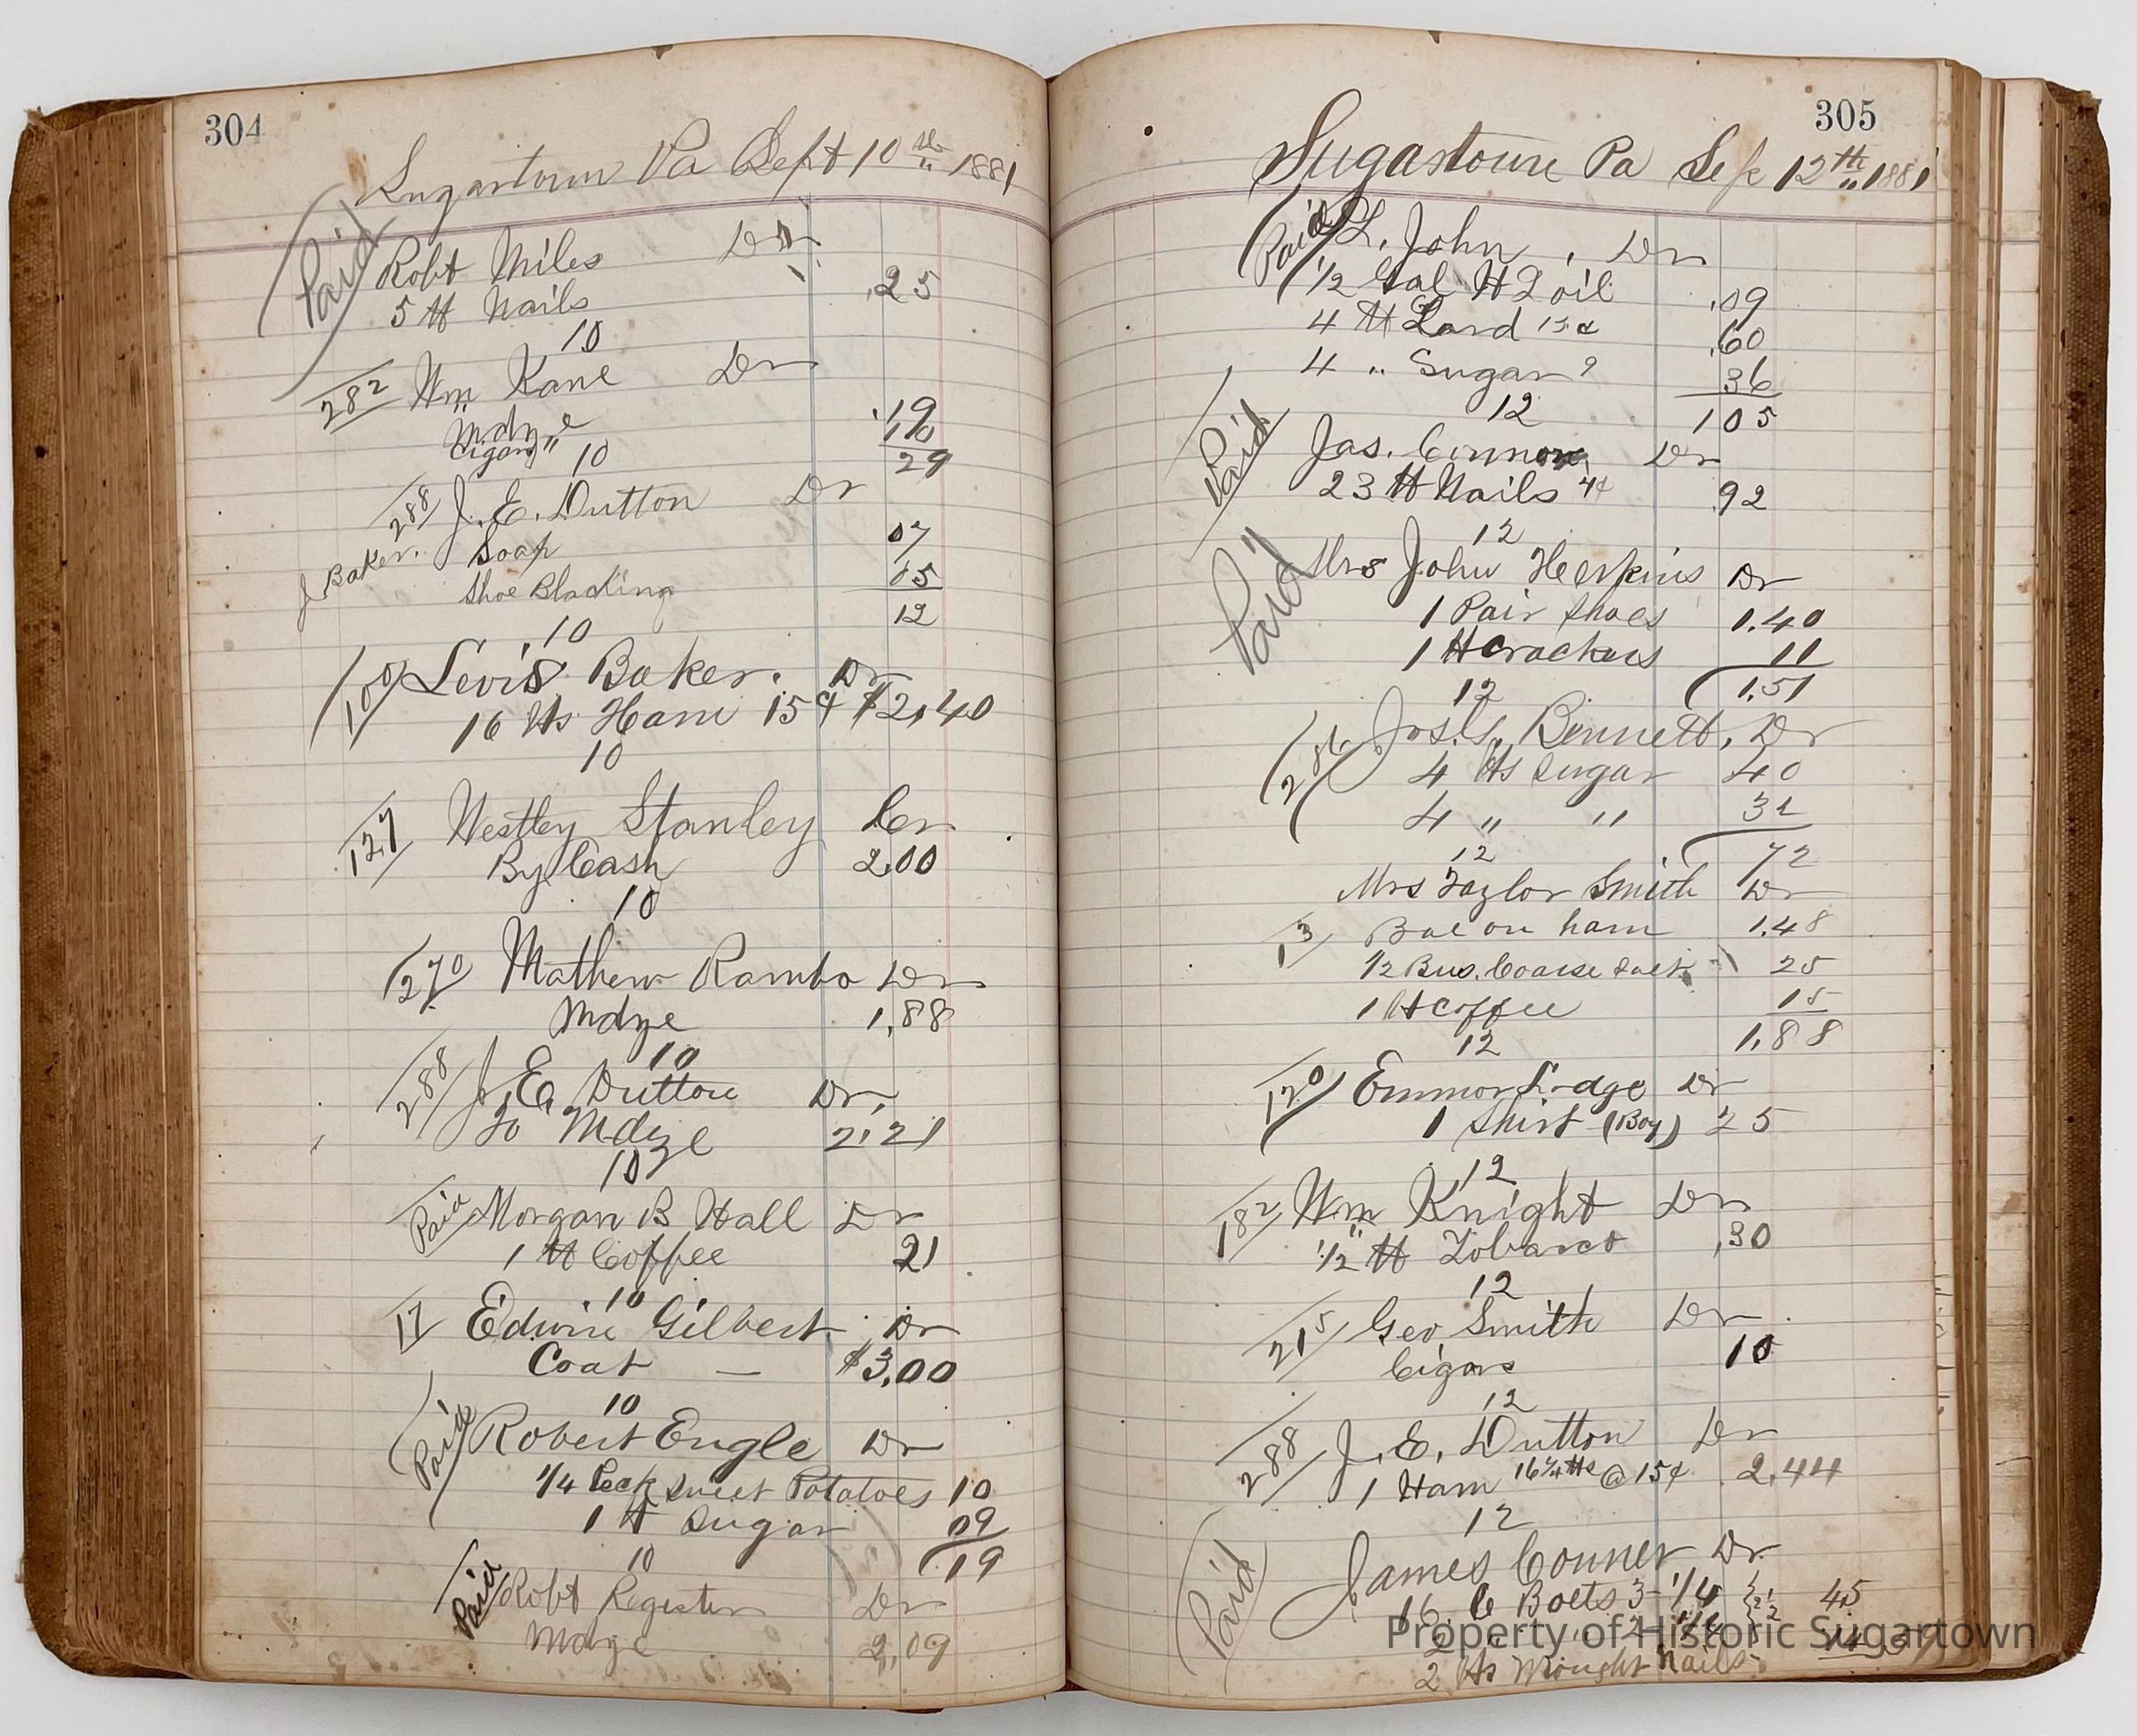 304
Sugartown Pa Sept 10th 1881
Paid Robt Miles Dr
5 ℔ Nails .25
10
282 Wm Kane Dr
Mdze .19
Cigars 10
29
10
288 J. E. Dutton Dr
J Baker. Soap 07
Shoe Blacking 05
12
10
100 Levis Baker. Dr
16 ℔s Ham 15¢ $2,40
10
127 Westley Stanley Cr
By Cash 2.00
10
270 Mathew Rambo Dr
Mdze 1,88
10
288 J, E, Dutton Dr,
To Mdze 2,21
10
Paid Morgan B Hall Dr
1 ℔ Coffee 21
10
17 Edwin Gilbert Dr
Coat — $3,00
10
Paid Robert Engle Dr
1/4 Peck Sweet Potatoes 10
1 ℔ Sugar 09
19
10
Paid Robt Register Dr
Mdze 2,09
305
Sugartown Pa Sep 12th 1881
Paid L. John, Dr
1/2 Gal H L oil .09
4 ℔ Lard 15¢ .60
4 " Sugar 9 36
105
12
Paid Jas. Connor Dr
23 ℔ Nails 4¢ 92
12
Paid Mrs John Dr
1 Pair Shoes 1.40
1 ℔ Crackers 11
1.51
12
286 Jos. Bennett, Dr
4 ℔s Sugar 40
4 " " 32
72
12
Mrs Taylor Smith Dr
13 Bacon ham 1.48
1/2 Bus. Coarse Salt 25
1 ℔ Coffee 15
1,88
12
120 Emmor Lodge Dr
1 Shirt (Boy) 25
12
182 Wm Knight Dr
1/2 ℔ Tobacco ,30
12
215 Geo Smith Dr
Cigars 10
12
288 J. E. Dutton Dr
1 Ham 16 1/4 ℔s @ 15¢ 2,44
12
Paid James Conner Dr
16 C Bolts 3-1/4 2 1/2 45
2 " " 2
2 ℔s Wrought Nails
Property of Historic Sugartown